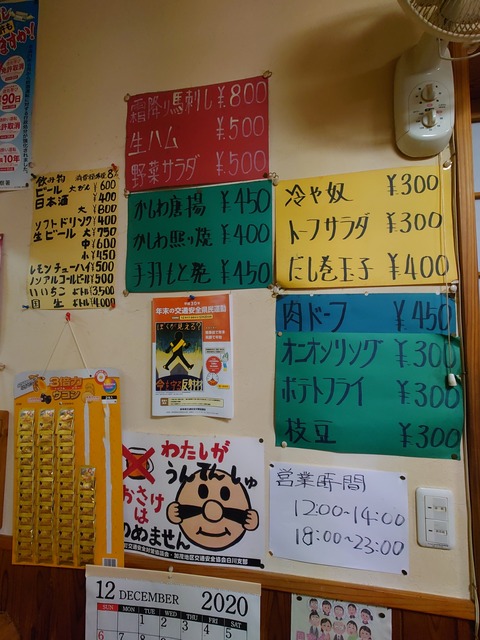 免許取消
90日
免許取消
10年
霜降り馬刺し ¥800
生ハム ¥500
野菜サラダ ¥500
飲み物
ビール 大かん ¥600
日本酒 ¥400
大 ¥800
ソフトドリンク ¥400
生ビール 大 ¥750
中 ¥600
小 ¥450
レモンチューハイ ¥500
ノンアルコールビール ¥500
いいちこ ボトル ¥3500
ボトル ¥4000
かしわ唐揚 ¥450
かしわ照り焼 ¥400
手羽もと ¥450
冷や奴 ¥300
トーフサラダ ¥300
だし巻玉子 ¥400
肉ドーフ ¥450
オニオンリング ¥300
ポテトフライ ¥300
枝豆 ¥300
平成30年
年末の交通安全県民運動
ぼくが見える?
今も守る反射材
3倍力
ウコン
わたしが
うんてんしゅ
おさけ
は
のめません
営業時間
12:00~14:00
18:00~23:00
12 DECEMBER 2020
SUN MON TUE WED THU FRI SAT
1 2 3 4 5
6 7 8